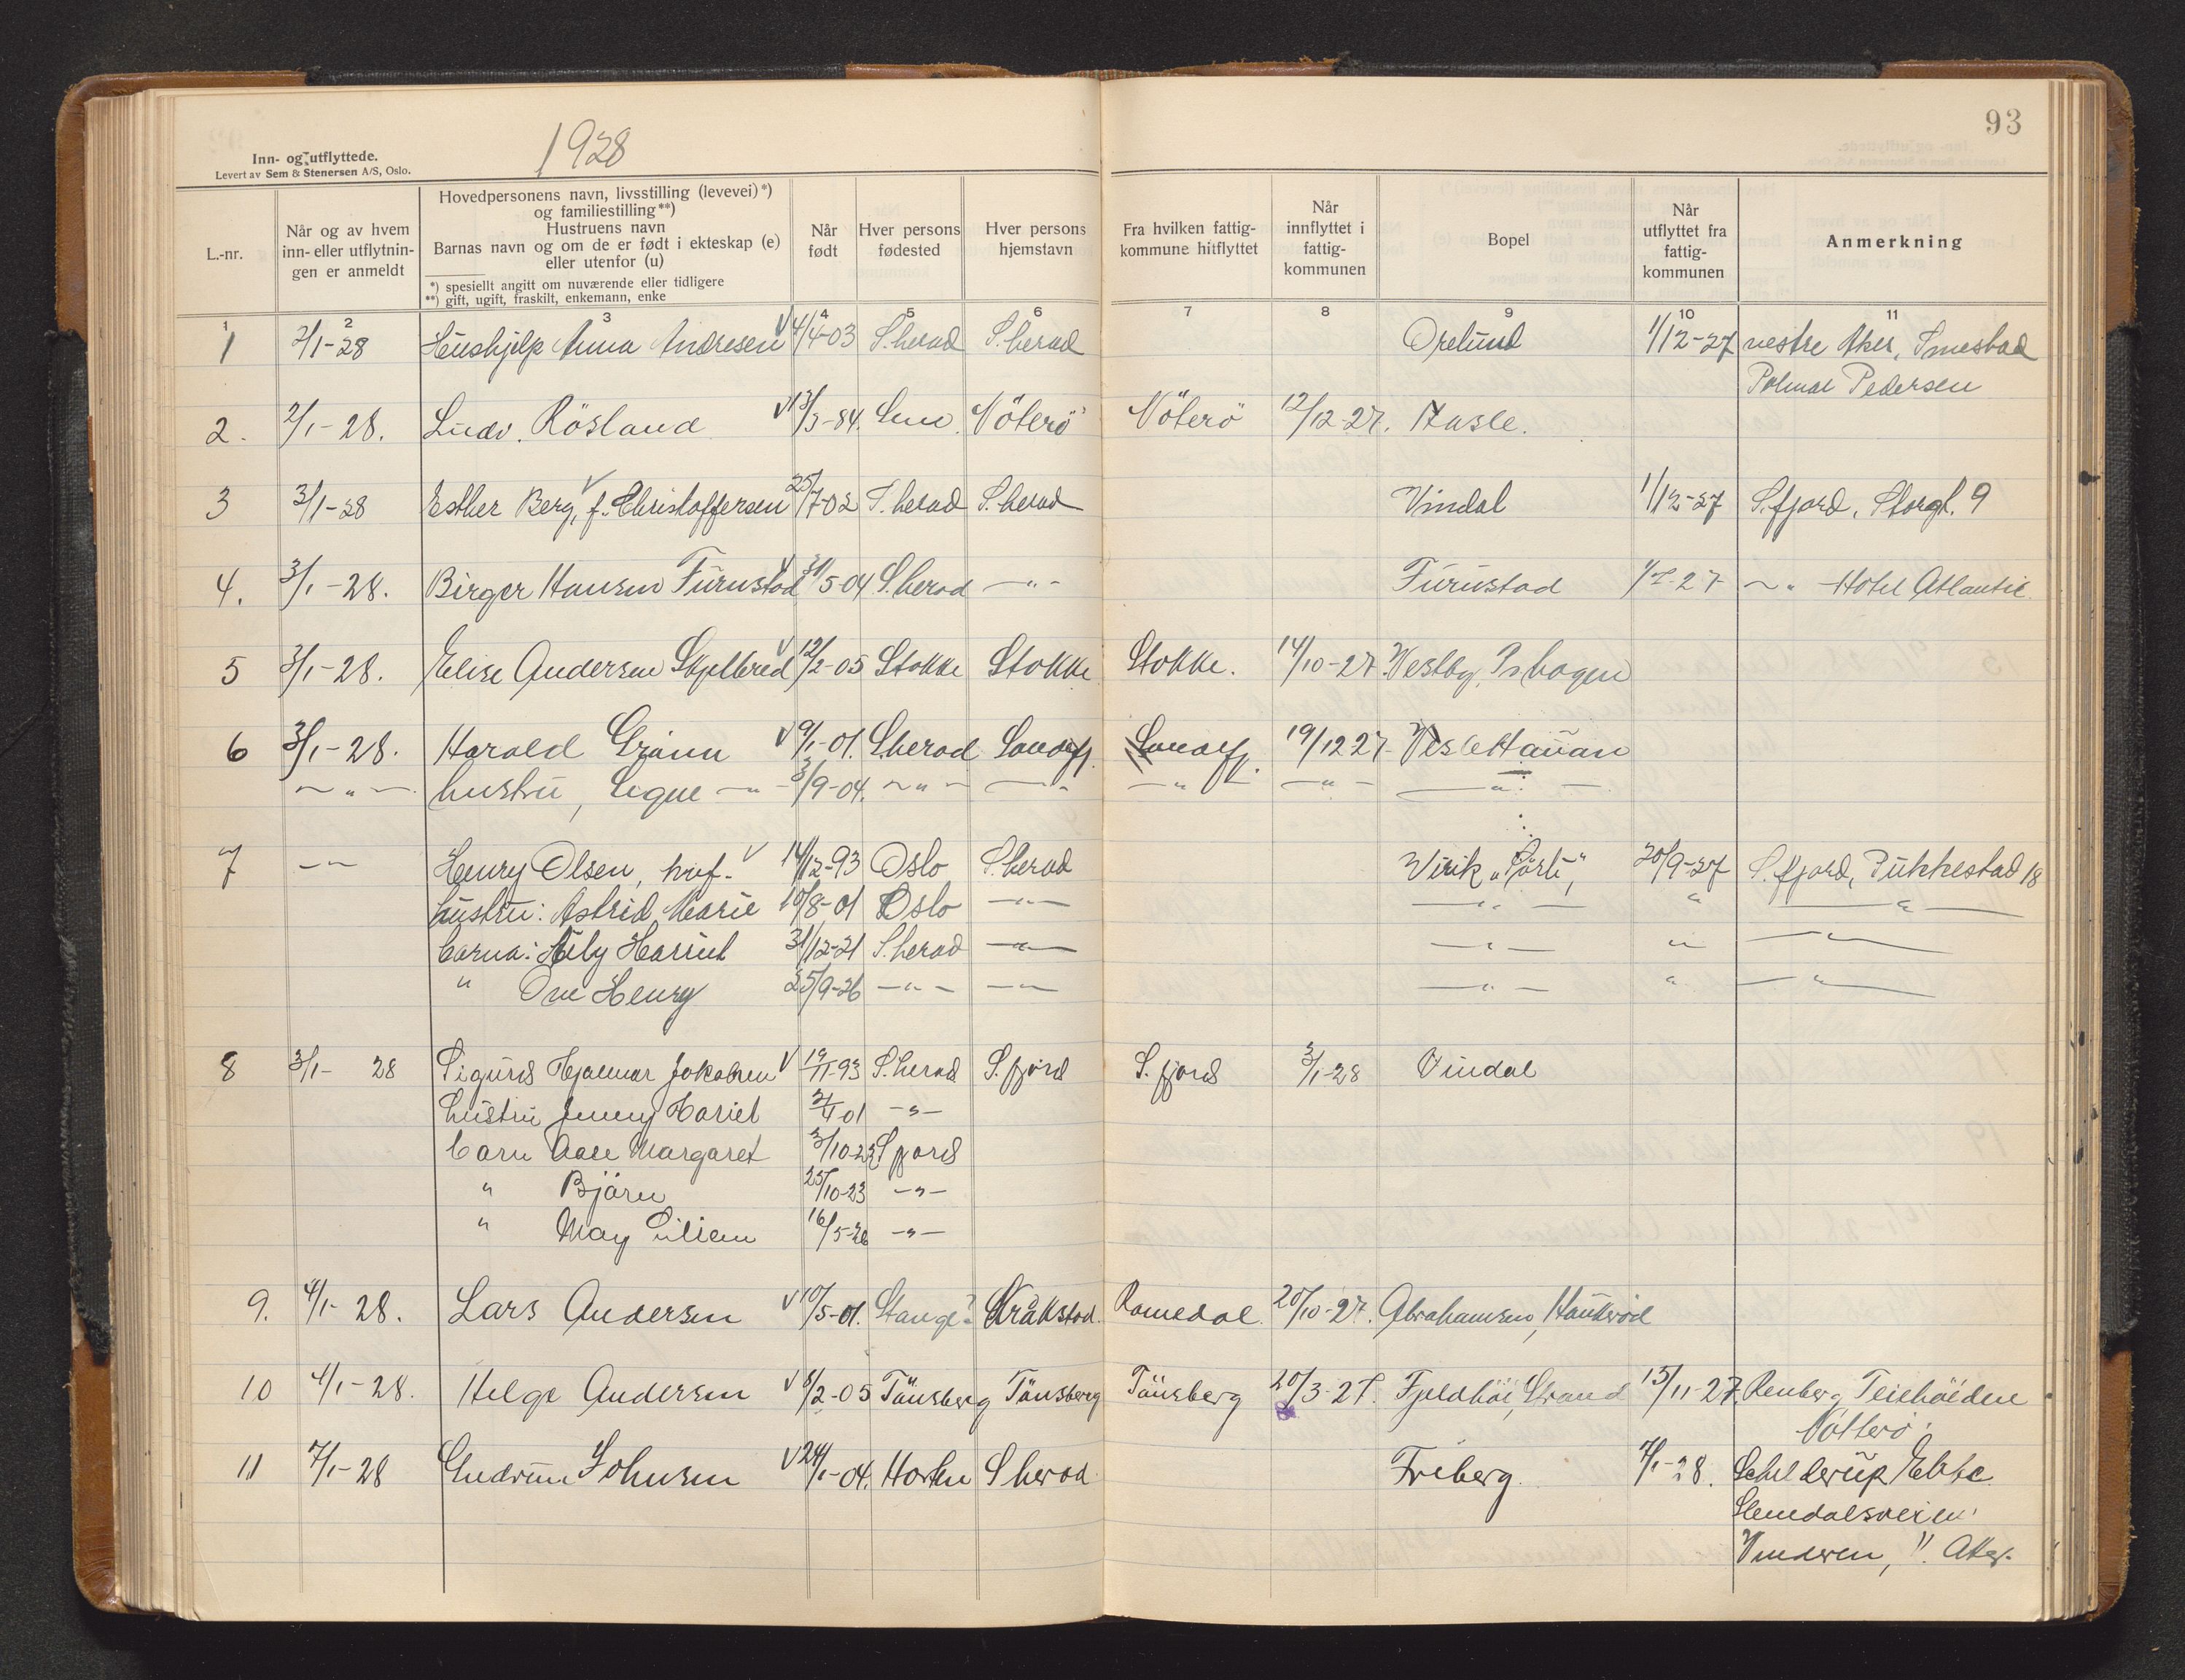 93
1928
Inn- og utflyttede.
Levert av Sem & Stenersen A/S, Oslo.
L.-nr.
Når og av hvem inn- eller utflytningen er anmeldt
Hovedpersonens navn, livsstilling (levevei)*)
og familiestilling**)
Hustruens navn
Barnas navn og om de er født i ekteskap (e)
eller utenfor (u)
*) spesiellt angitt om nuværende eller tidligere
**) gift, ugift, fraskilt, enkemann, enke
Når født
Hver persons fødested
Hver persons hjemstavn
Fra hvilken fattigkommune hitflyttet
Når innflyttet i fattigkommunen
Bopel
Når utflyttet fra fattigkommunen
Anmerkning
1 2 3 4 5 6 7 8 9 10 11
1 2/1-28 Hushjelp Anna Andresen √ 4/4-03 S.herad S.herad Orelund 1/12-27 vestre Aker, Smestad
Pedersen
2. 2/1-28. Ludv. Rösland √ 13/3-84. Sem. Nöterö Nöterö 12/12-27. Hasle.
3 3/1-28 Esther Berg, f. Christoffersen √ 25/7-02 S.herad S.herad Vindal 1/12-27 S.fjord, Storgt. 9
4. 3/1-28. Birger Hansen Furustad √ 31/5-04 S.herad -"- Furustad -27 -"- Hotel Atlantic
5 3/1-28. Elise Andersen Skjelbred √ 12/2-05 Stokke Stokke Stokke. 14/10-27. Vestby,
6 3/1-28. Harald Grönn √ 9/1-01. S.herad Sandefj. Sandefj. 19/12 27. Vesle Haugan
-"- hustru, Signe -"- 3/9-04. -"- -"- -"- -"- -"-
7 -"- Henry Olsen, √ 14/12-93 Oslo S.herad Virik 20/9-27 S.fjord, Pukkestad 18
hustru: Astrid Marie 10/8-01 Oslo -"- -"- " -"-
barna: Harriet 31/12-21 S.herad -"- -"- " -"-
" Ove Henry 25/9-26 -"- -"- -"- " -"-
8 3/1- 28 Sigurd Hjalmar Jakobsen √ 19/11-93 S.herad S.fjord S.fjord 3/1-28 Vindal
hustru Jenny Hariet 01 -"-
barn Aase Margaret 3/10-22 S.fjord
" Björn 25/10-23 -"-
" May Lilian 16/5-26 -"-
9. 4/1- 28. Lars Andersen √ 10/5-01. Stange? Kråkstad. Romedal. 20/10-27. Abrahamsen, Haukerød
10 4/1-28. Helge Andersen √ 8/2-05 Tönsberg Tönsberg Tönsberg 20/3-27. Fjeldhöi, Strand 15/11-27. Renberg, Teiehöiden
Nötterö.
11 7/1-28 Gudrun Johnsen √ 24/1-04. Horten S herad. Friberg. 7/1-28. Schjelderup Ebbe
Slemdalsveien
Vinderen, V. Aker.